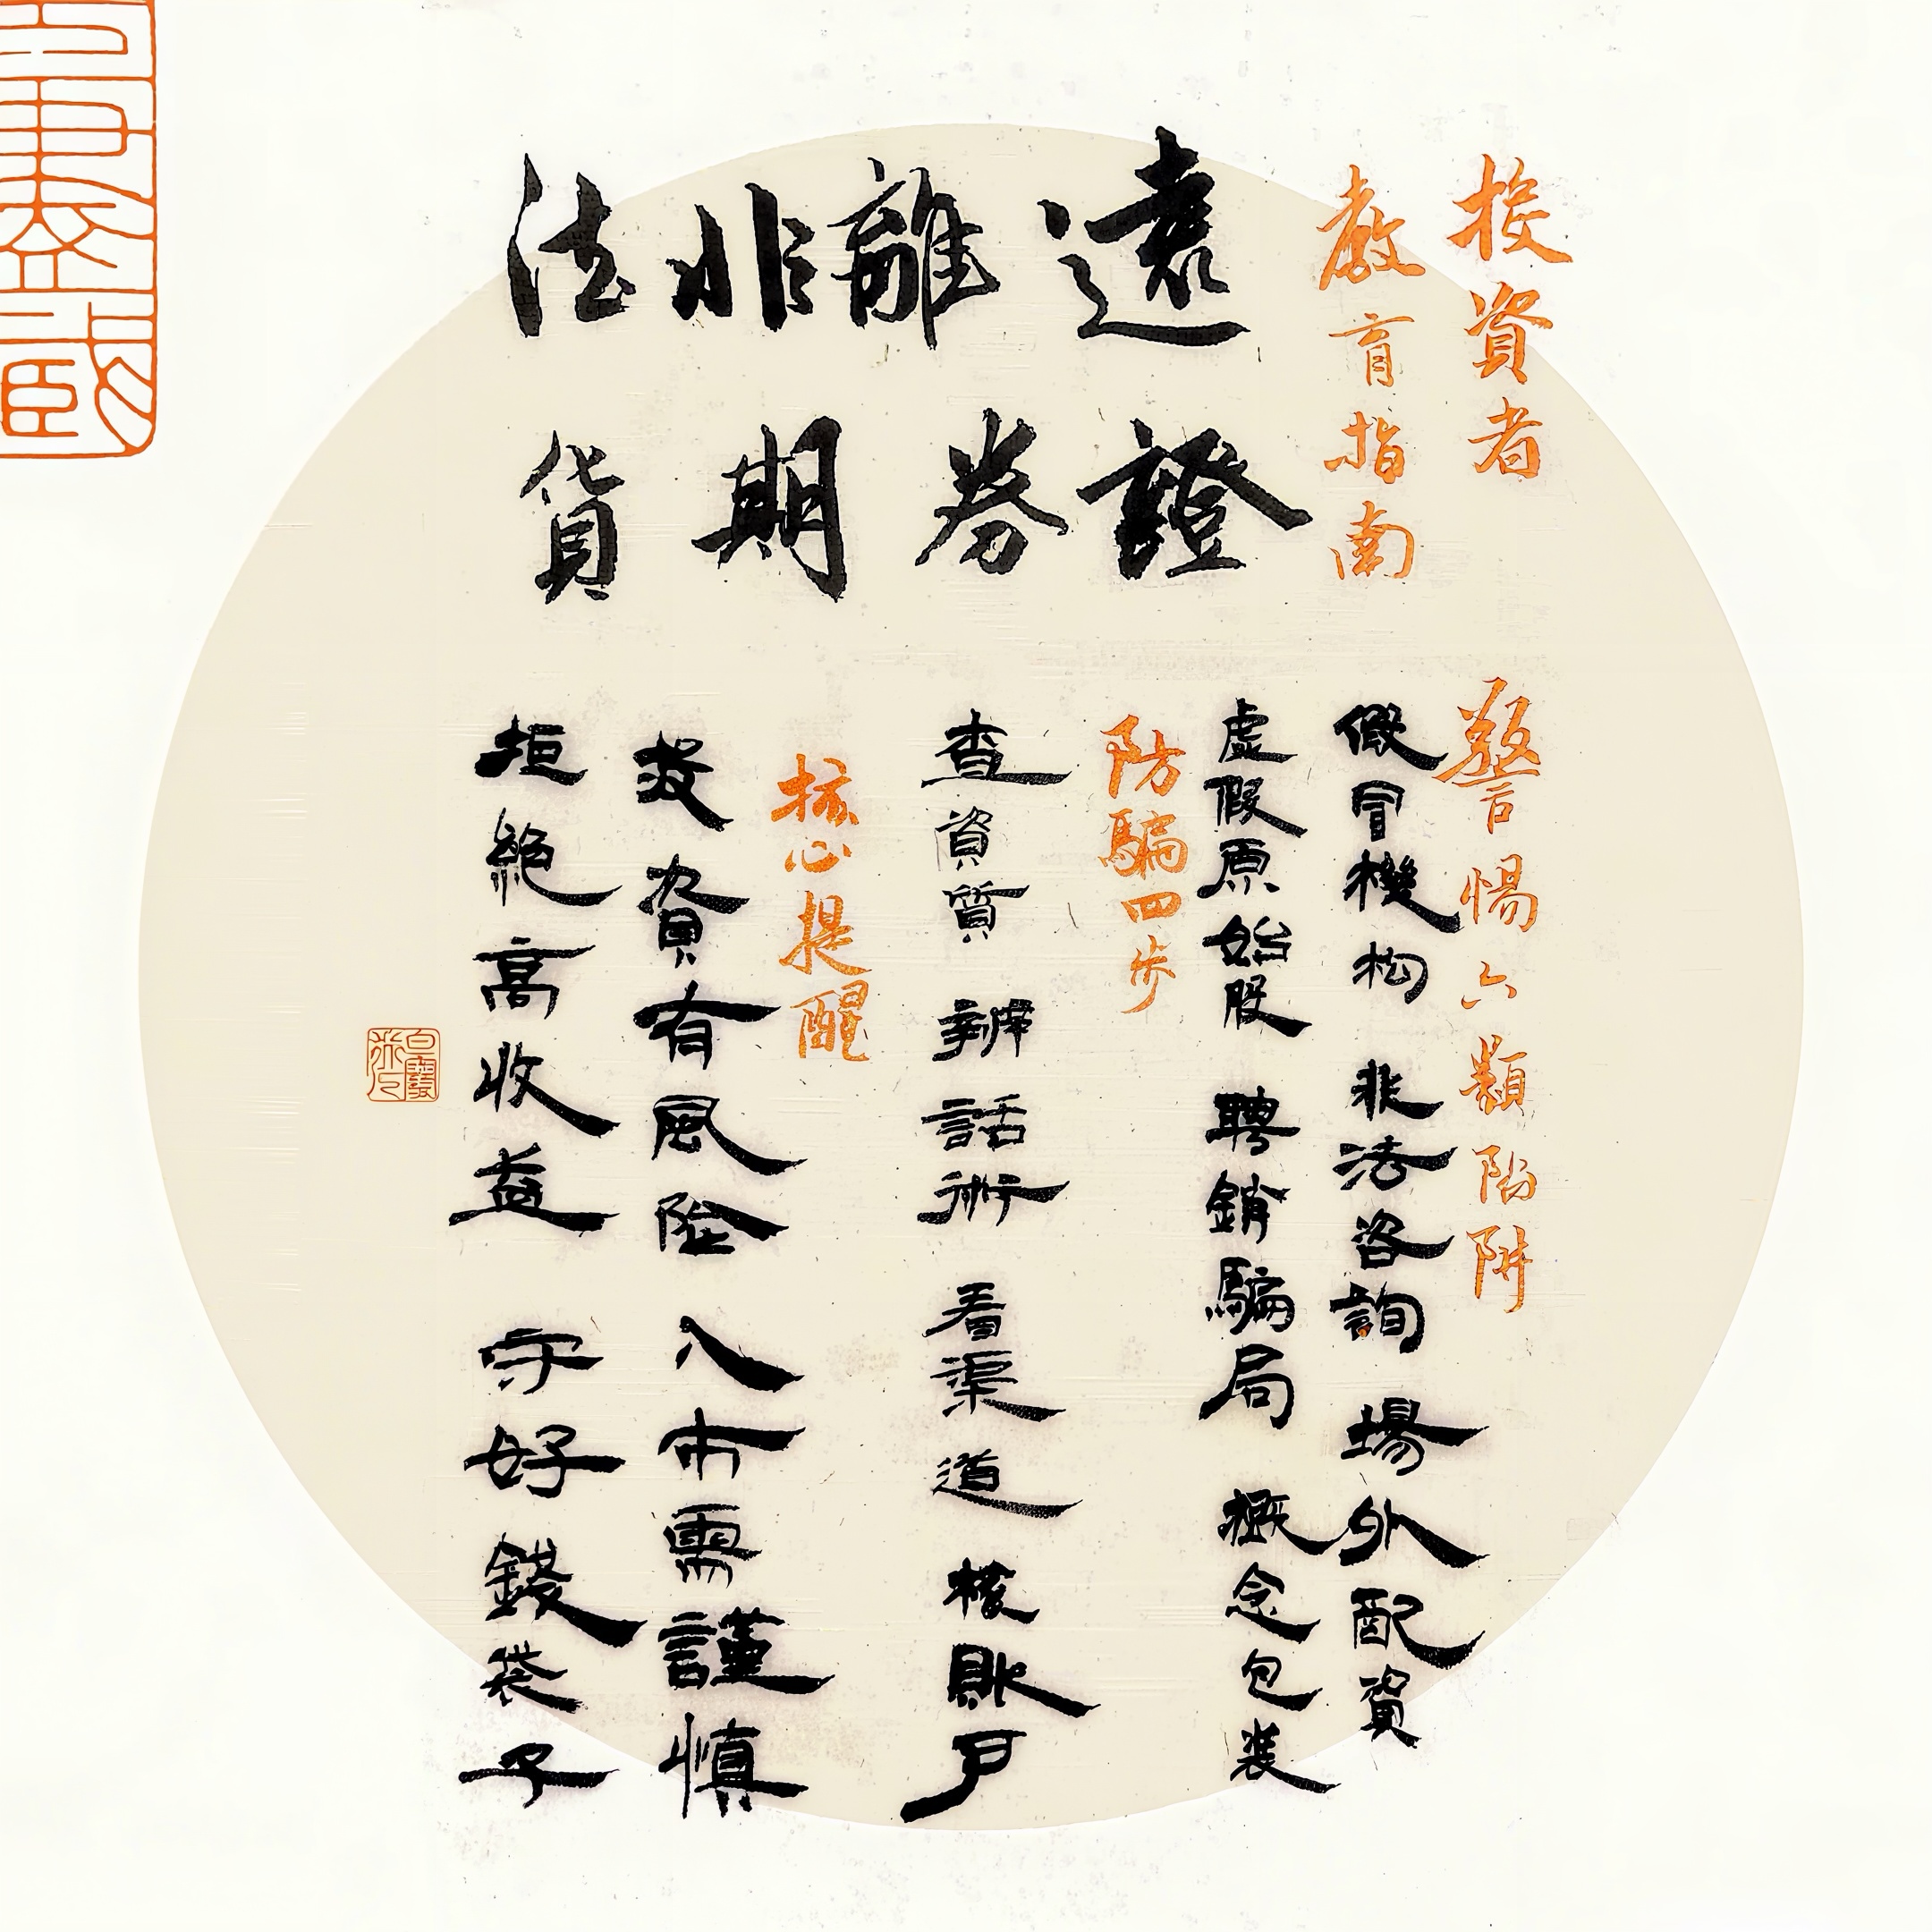 投資者
教育指南
遠離非法
證券期貨
警惕六類陷阱
假冒機构 非法咨詢 場外配資
虛假原始股 聘銷騙局 概念包装
防騙四步
查資質 辨話術 看渠道 核賬戶
核心提醒
投資有風险 入市需謹慎
拒絕高收益 守好錢袋子